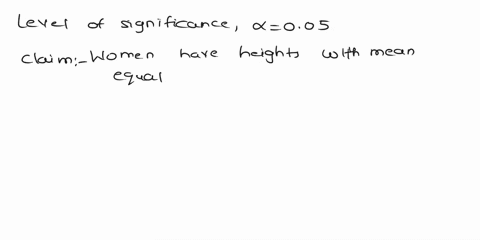 Level of significance, α=0.05
Claim:- Women have heights with mean
equal